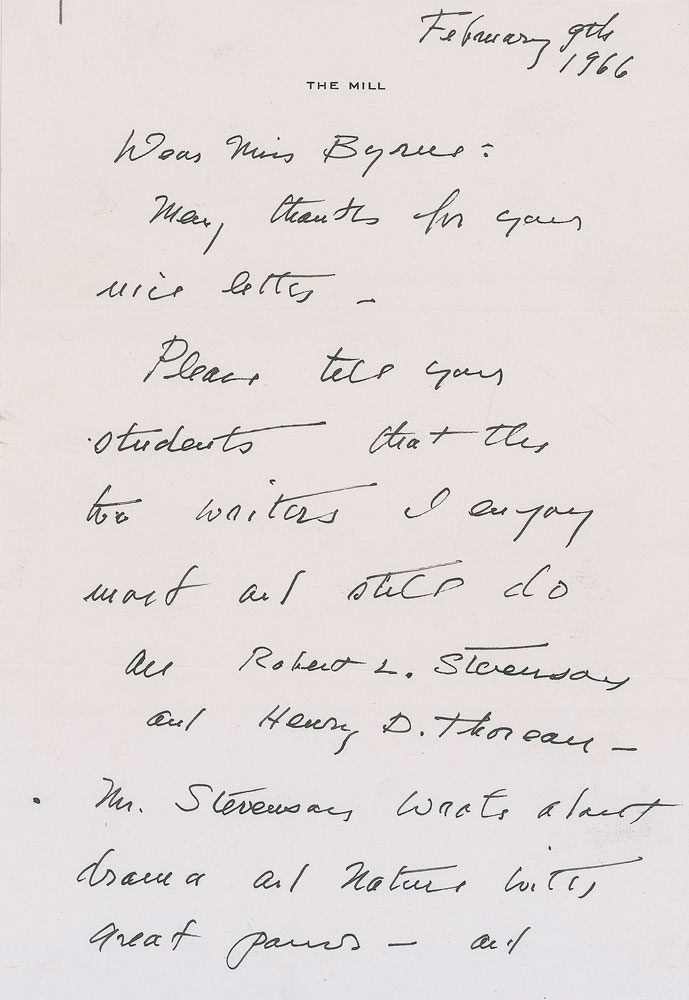 February 9th
1966
THE MILL
Dear Miss Byrne:
Many thanks for your
nice letter –
Please tell your
students that the
two writers I enjoy
most and still do
are Robert L. Stevenson
and Henry D. Thoreau –
Mr. Stevenson wrote about
drama and nature with
great power – and